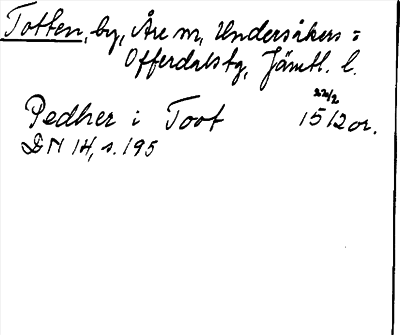 Totten, by, Åre sn, Undersåkers =
Offerdals tg, Jämtl. l.
Pedher i Toot 22/2 1512 or.
DN 14, s. 195